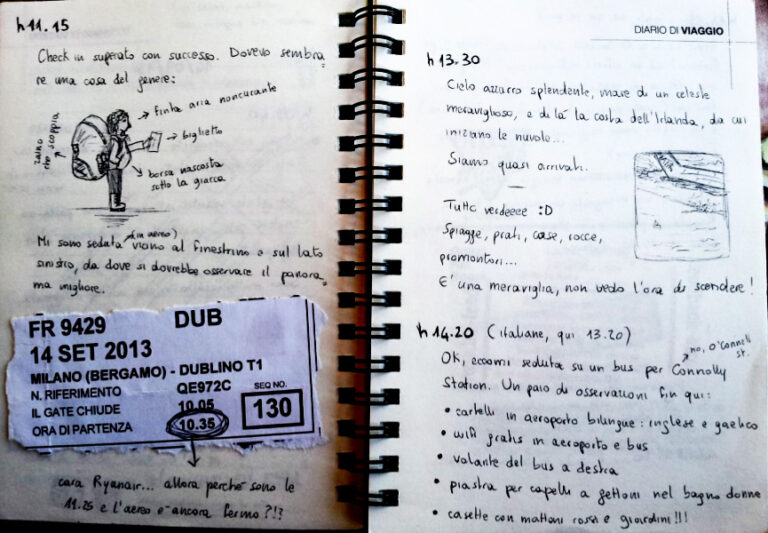 h 11.15
Check in superato con successo. Dovevo sembra
re una cosa del genere:
finta aria noncurante
biglietto
zaino
che scoppia
borsa nascosta
sotto la giacca
(in aereo)
Mi sono seduta vicino al finestrino e sul lato
sinistro, da dove si dovrebbe osservare il panora,
ma migliore.
FR 9429 DUB
14 SET 2013
MILANO (BERGAMO) - DUBLINO T1
N. RIFERIMENTO QE972C SEQ NO.
IL GATE CHIUDE 10.05 130
ORA DI PARTENZA 10.35
cara Ryanair... allora perché sono le
11.25 e l'aereo è ancora fermo?!?
DIARIO DI VIAGGIO
h 13.30
Cielo azzurro splendente, mare di un celeste
meraviglioso, e di là la costa dell'Irlanda, da cui
iniziano le nuvole...
Siamo quasi arrivati.
Tutto verdeeee :D
Spiagge, prati, case, rocce,
promontori...
E' una meraviglia, non vedo l'ora di scendere!
h 14.20 (italiane, qui 13.20)
no, O'Connell
st.
Ok, eccomi seduta su un bus per Connolly
Station. Un paio di osservazioni fin qui:
• cartelli in aeroporto bilingue: inglese e gaelico
• wifi gratis in aeroporto e bus
• volante del bus a destra
• piastra per capelli a gettoni nel bagno donne
• casette con mattoni rossi e giardini!!!